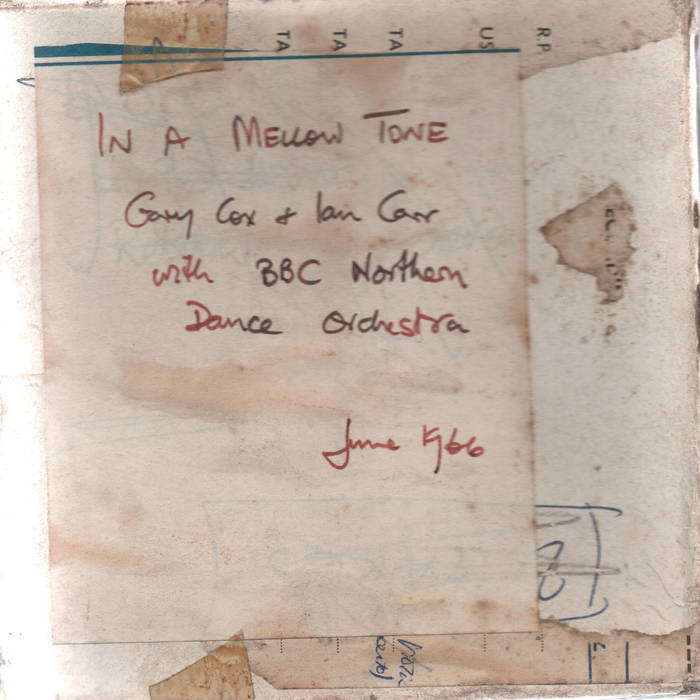 TA
TA
TA
US
R.P
IN A MELLOW TONE
Gary Cox & Ian Carr
with BBC Northern
Dance Orchestra
June 1966